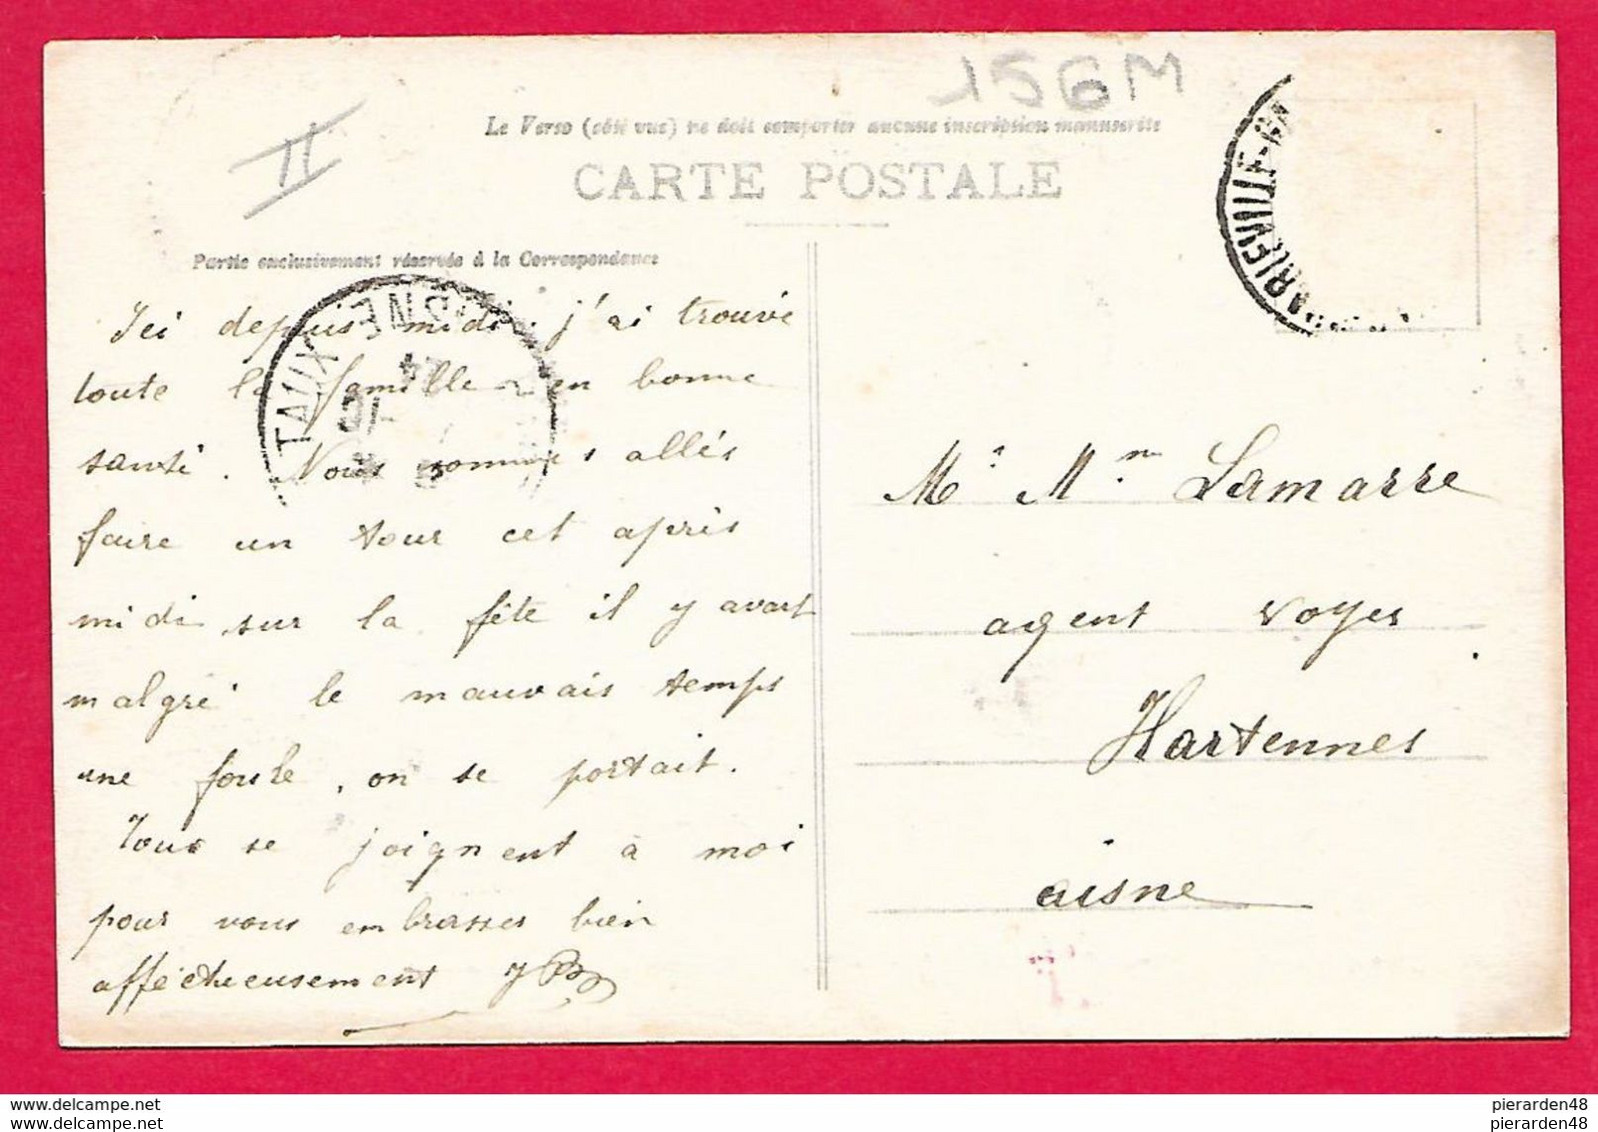 156M
II
Le Verso (côté vue) ne doit comporter aucune inscription manuscrite
CARTE POSTALE
Partie exclusivement réservée à la Correspondance
TAUX AISNE
24
Ici depuis midi. j'ai trouvé
toute la famille en bonne
santé. Nous sommes allés
faire un tour cet après
midi sur la fête il y avait
malgré le mauvais temps
une foule, on se portait.
Tous se joignent à moi
pour vous embrasser bien
affectueusement
Mr Mm Lamarre
agent voyer
Hartennes
aisne
www.delcampe.net
pierarden48
www.delcampe.net
pierarden48